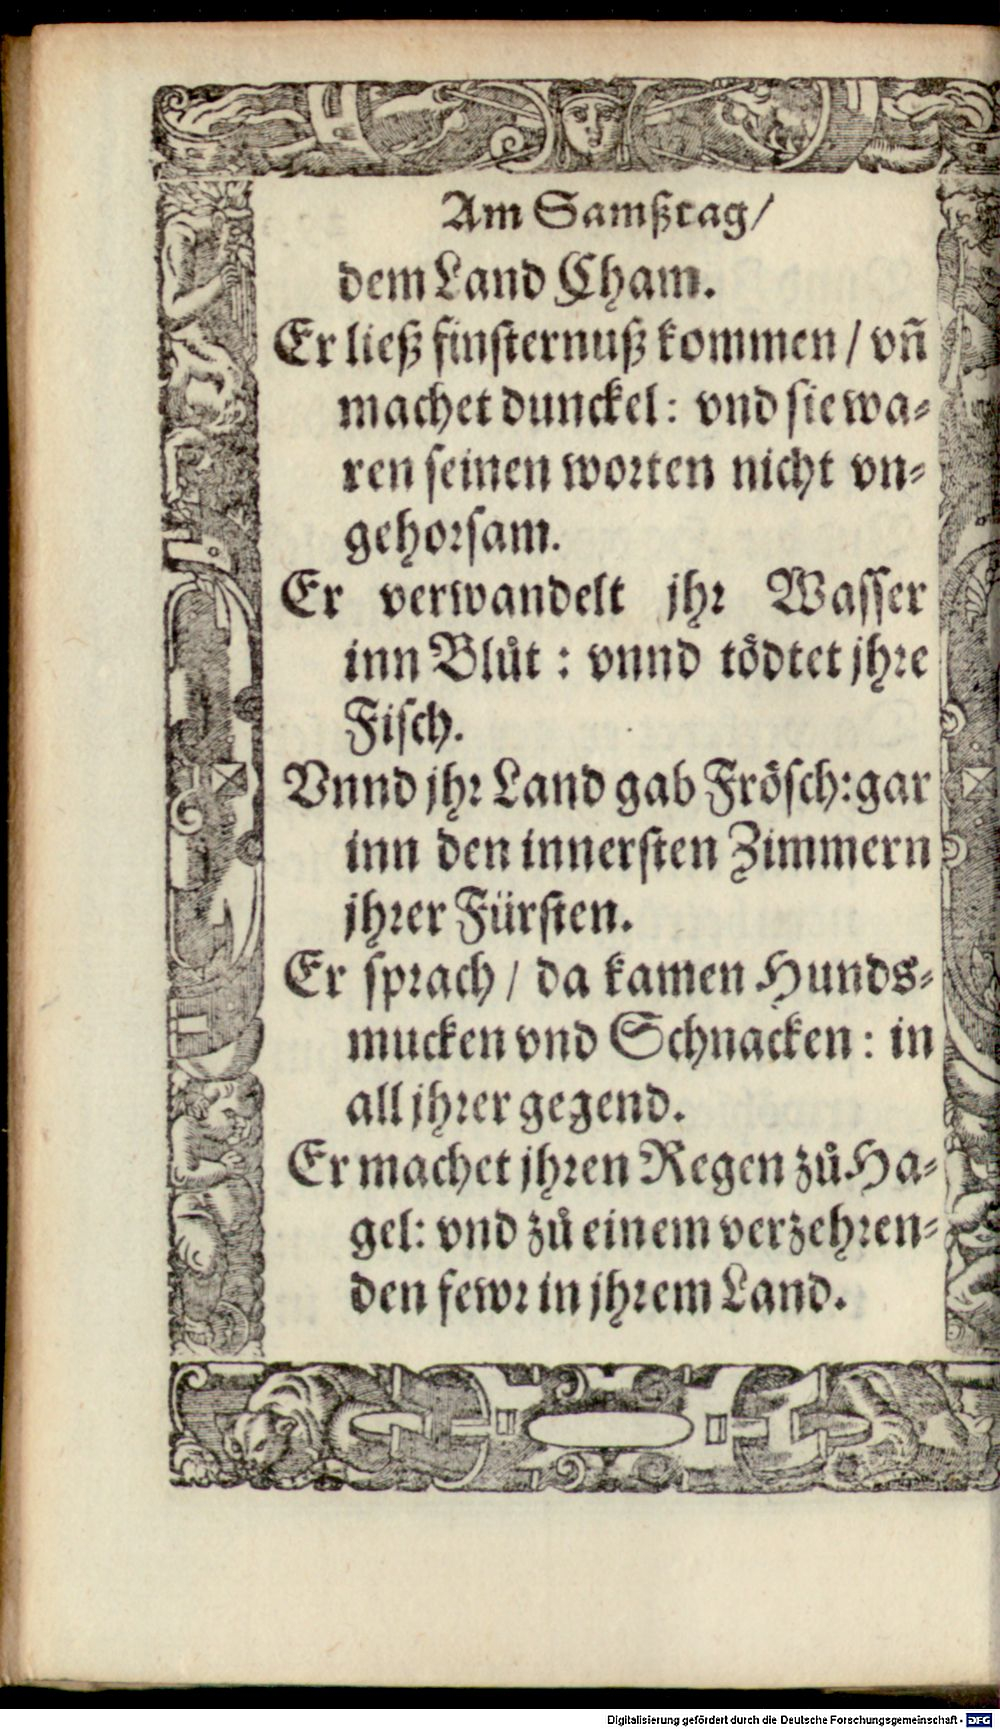 Am Samßtag/
dem Land Cham.
Er ließ finsternuß kommen / vn̄
machet dunckel: vnd sie wa⸗
ren seinen worten nicht vn⸗
gehorsam.
Er verwandelt jhr Wasser
inn Blůt : vnnd tödtet jhre
Fisch.
Vnnd jhr Land gab Frösch: gar
inn den innersten Zimmern
jhrer Fürsten.
Er sprach / da kamen Hunds⸗
mucken vnd Schnacken : in
all jhrer gegend.
Er machet jhren Regen zů Ha⸗
gel: vnd zů einem verzehren⸗
den fewr in jhrem Land.
Digitalisierung gefördert durch die Deutsche Forschungsgemeinschaft - DFG